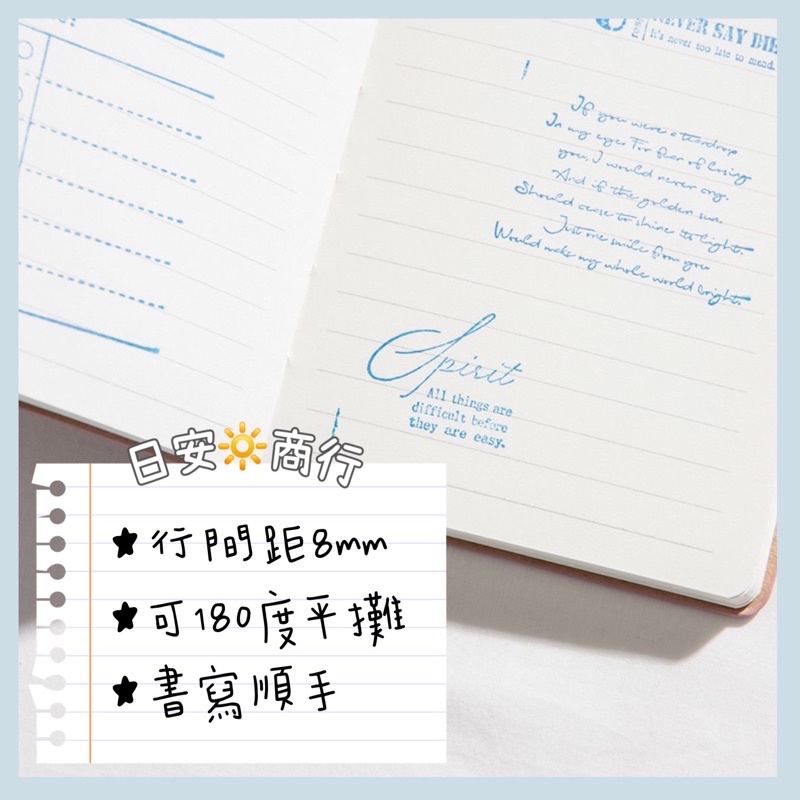 NEVER SAY DIE
It's never too late to mend.
If you were a teardrop
In my eye, For fear of losing
you, I would never cry.
And if the golden sun
Should cease to shine its light,
Just one smile from you
Would make my whole world bright.
Spirit
All things are
difficult before
they are easy.
日安🔆商行
★行間距8mm
★可180度平攤
★書寫順手